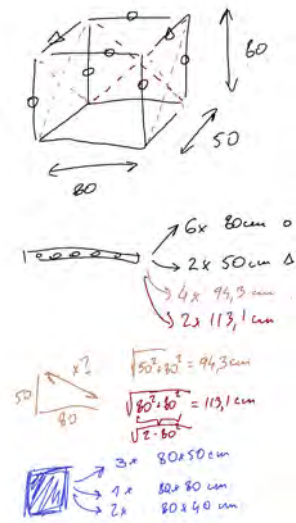 80
50
80
6x 80cm o
2x 50cm Δ
4x 94,3 cm
2x 113,1 cm
x?
50
80
√50²+80² = 94,3cm
√80²+80² = 113,1 cm
√2·80²
3x 80x50cm
1x 80x80 cm
2x 80x40 cm